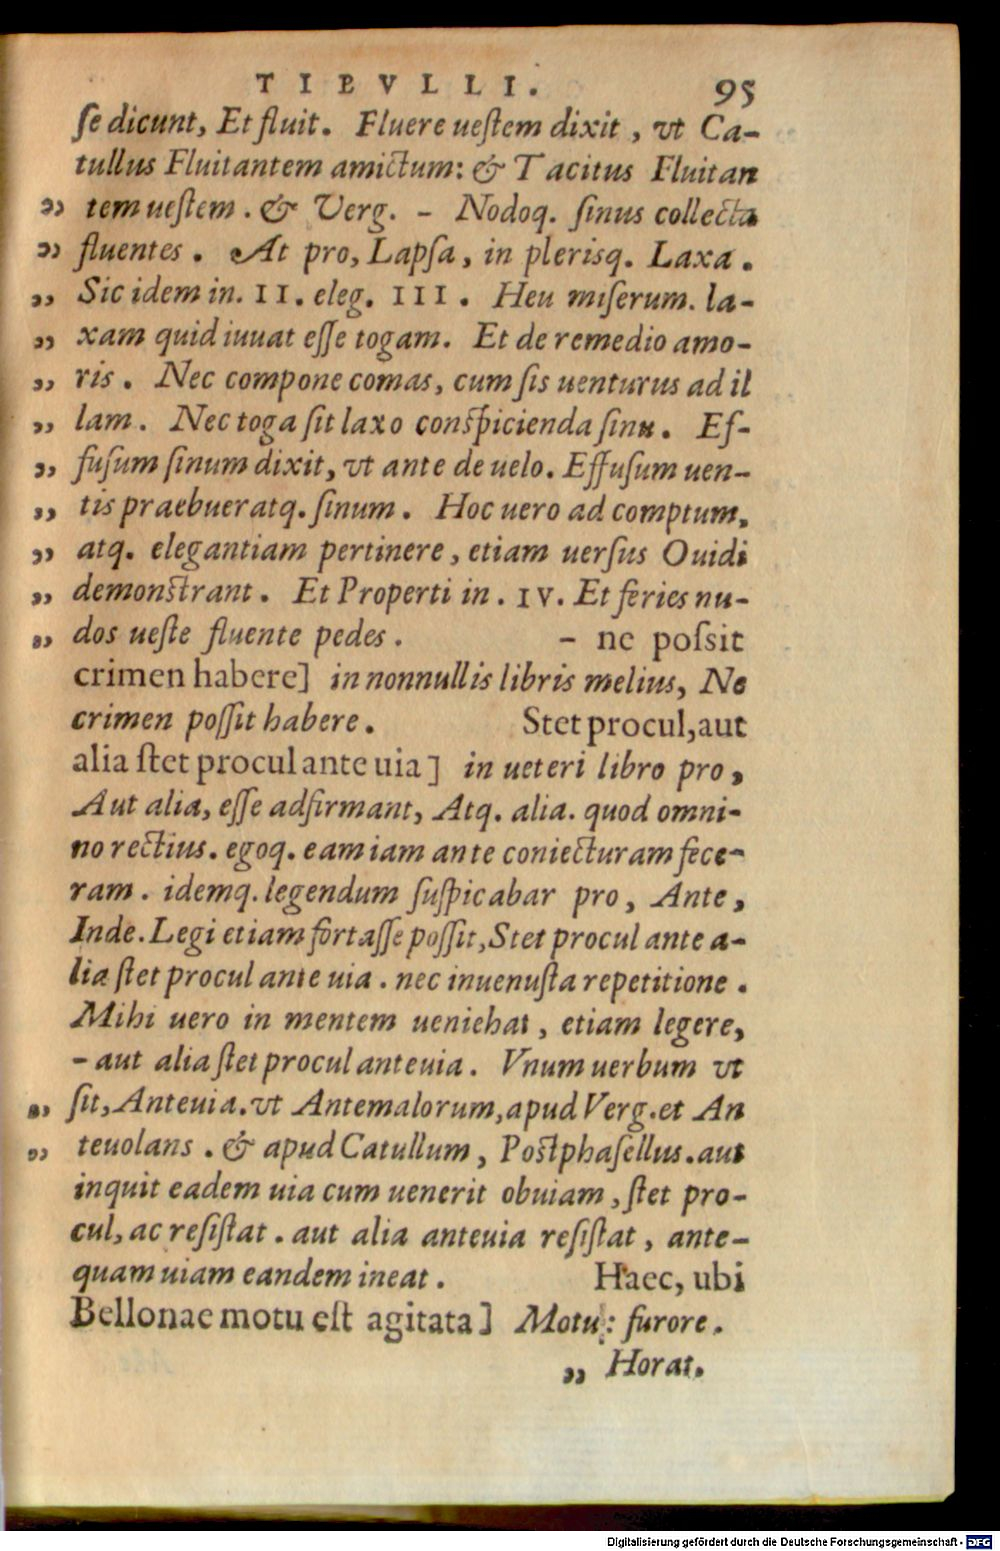 TIBVLLI. 95
se dicunt, Et fluit. Fluere uestem dixit, vt Ca-
tullus Fluitantem amictum: & Tacitus Fluitan
„ tem uestem. & Verg. - Nodoq. sinus collecta
„ fluentes. At pro, Lapsa, in plerisq. Laxa.
„ Sic idem in. II. eleg. III. Heu miserum. la-
„ xam quid iuuat esse togam. Et de remedio amo-
„ ris. Nec compone comas, cum sis uenturus ad il
„ lam. Nec toga sit laxo conspicienda sinu. Ef-
„ fusum sinum dixit, vt ante de uelo. Effusum uen-
„ tis praebueratq. sinum. Hoc uero ad comptum,
„ atq. elegantiam pertinere, etiam uersus Ouidi
„ demonstrant. Et Properti in. IV. Et feries nu-
„ dos ueste fluente pedes. - ne possit
crimen habere] in nonnullis libris melius, Ne
crimen possit habere. Stet procul, aut
alia stet procul ante uia] in ueteri libro pro,
Aut alia, esse adfirmant, Atq. alia. quod omni-
no rectius. egoq. eam iam ante coniecturam fece-
ram. idemq. legendum suspicabar pro, Ante,
Inde. Legi etiam fortasse possit, Stet procul ante a-
lia stet procul ante uia. nec inuenusta repetitione.
Mihi uero in mentem ueniebat, etiam legere,
- aut alia stet procul anteuia. Vnum uerbum vt
„ sit, Anteuia. vt Antemalorum, apud Verg. et An
„ teuolans. & apud Catullum, Postphasellus. aut
inquit eadem uia cum uenerit obuiam, stet pro-
cul, ac resistat. aut alia anteuia resistat, ante-
quam uiam eandem ineat. Haec, ubi
Bellonae motu est agitata] Motu: furore.
„ Horat.
Digitalisierung gefördert durch die Deutsche Forschungsgemeinschaft - DFG